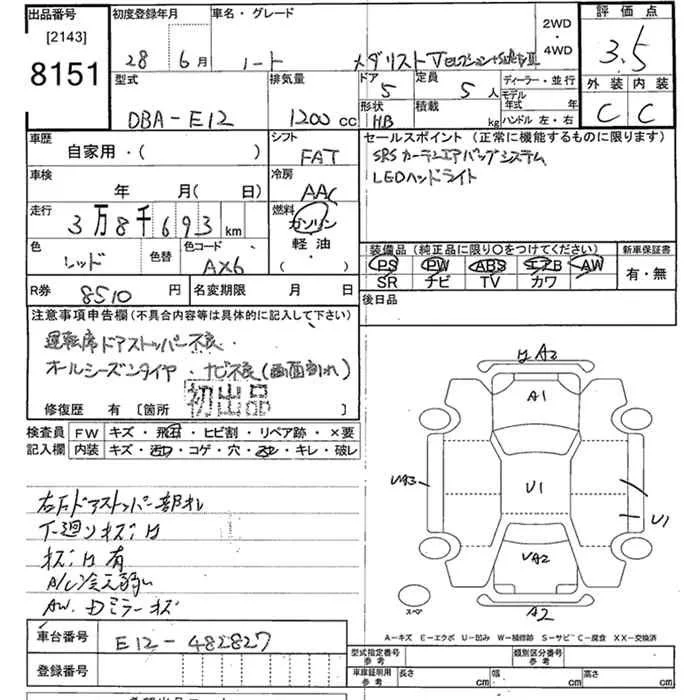 出品番号
[2143]
8151
初度登録年月
28 6月
車名・グレード
ノート メダリスト
2WD
・
4WD
評価点
3.5
外装 内装
C C
型式
DBA-E12
排気量
1200 cc
ドア 5
形状 HB
定員 5 人
積載 kg
ディーラー・並行
モデル年式 年
ハンドル 左・右
車歴
自家用・( )
シフト
FAT
車検
年 月( 日)
冷房
AAC
走行
3万8千693 km
燃料
ガソリン
軽油
・
( )
色
レッド
色替
色コード
AX6
R券 8510 円
名変期限 月 日
セールスポイント (正常に機能するものに限ります)
SRSカーテンエアバッグシステム
LEDヘッドライト
装備品(純正品に限り〇をつけてください)
PS PW ABS エアB AW
SR ナビ TV カワ
新車保証書
有・無
後日品
注意事項申告欄(不具合内容等は具体的に記入して下さい)
運転席ドアストッパー不良
オールシーズンタイヤ・ナビ不良(画面割れ)
修復歴 有 [箇所 ]
初出品
検査員記入欄
FW キズ・飛石・ヒビ割・リペア跡・×要
内装 キズ・コゲ・穴・キレ・破レ
下廻りキズ・サ
キズ・サ有
A/C冷え弱い
AW、Dミラーキズ
A1
U1
UA3
U1
UA2
A2
スペア
A-キズ E-エクボ U-凹み W-補修跡 S-サビ C-腐食 XX-交換済
車台番号
E12-482827
登録番号
型式指定番号
参考
類別区分番号
参考
車庫証明用
参考
長さ cm 幅 cm 高さ cm